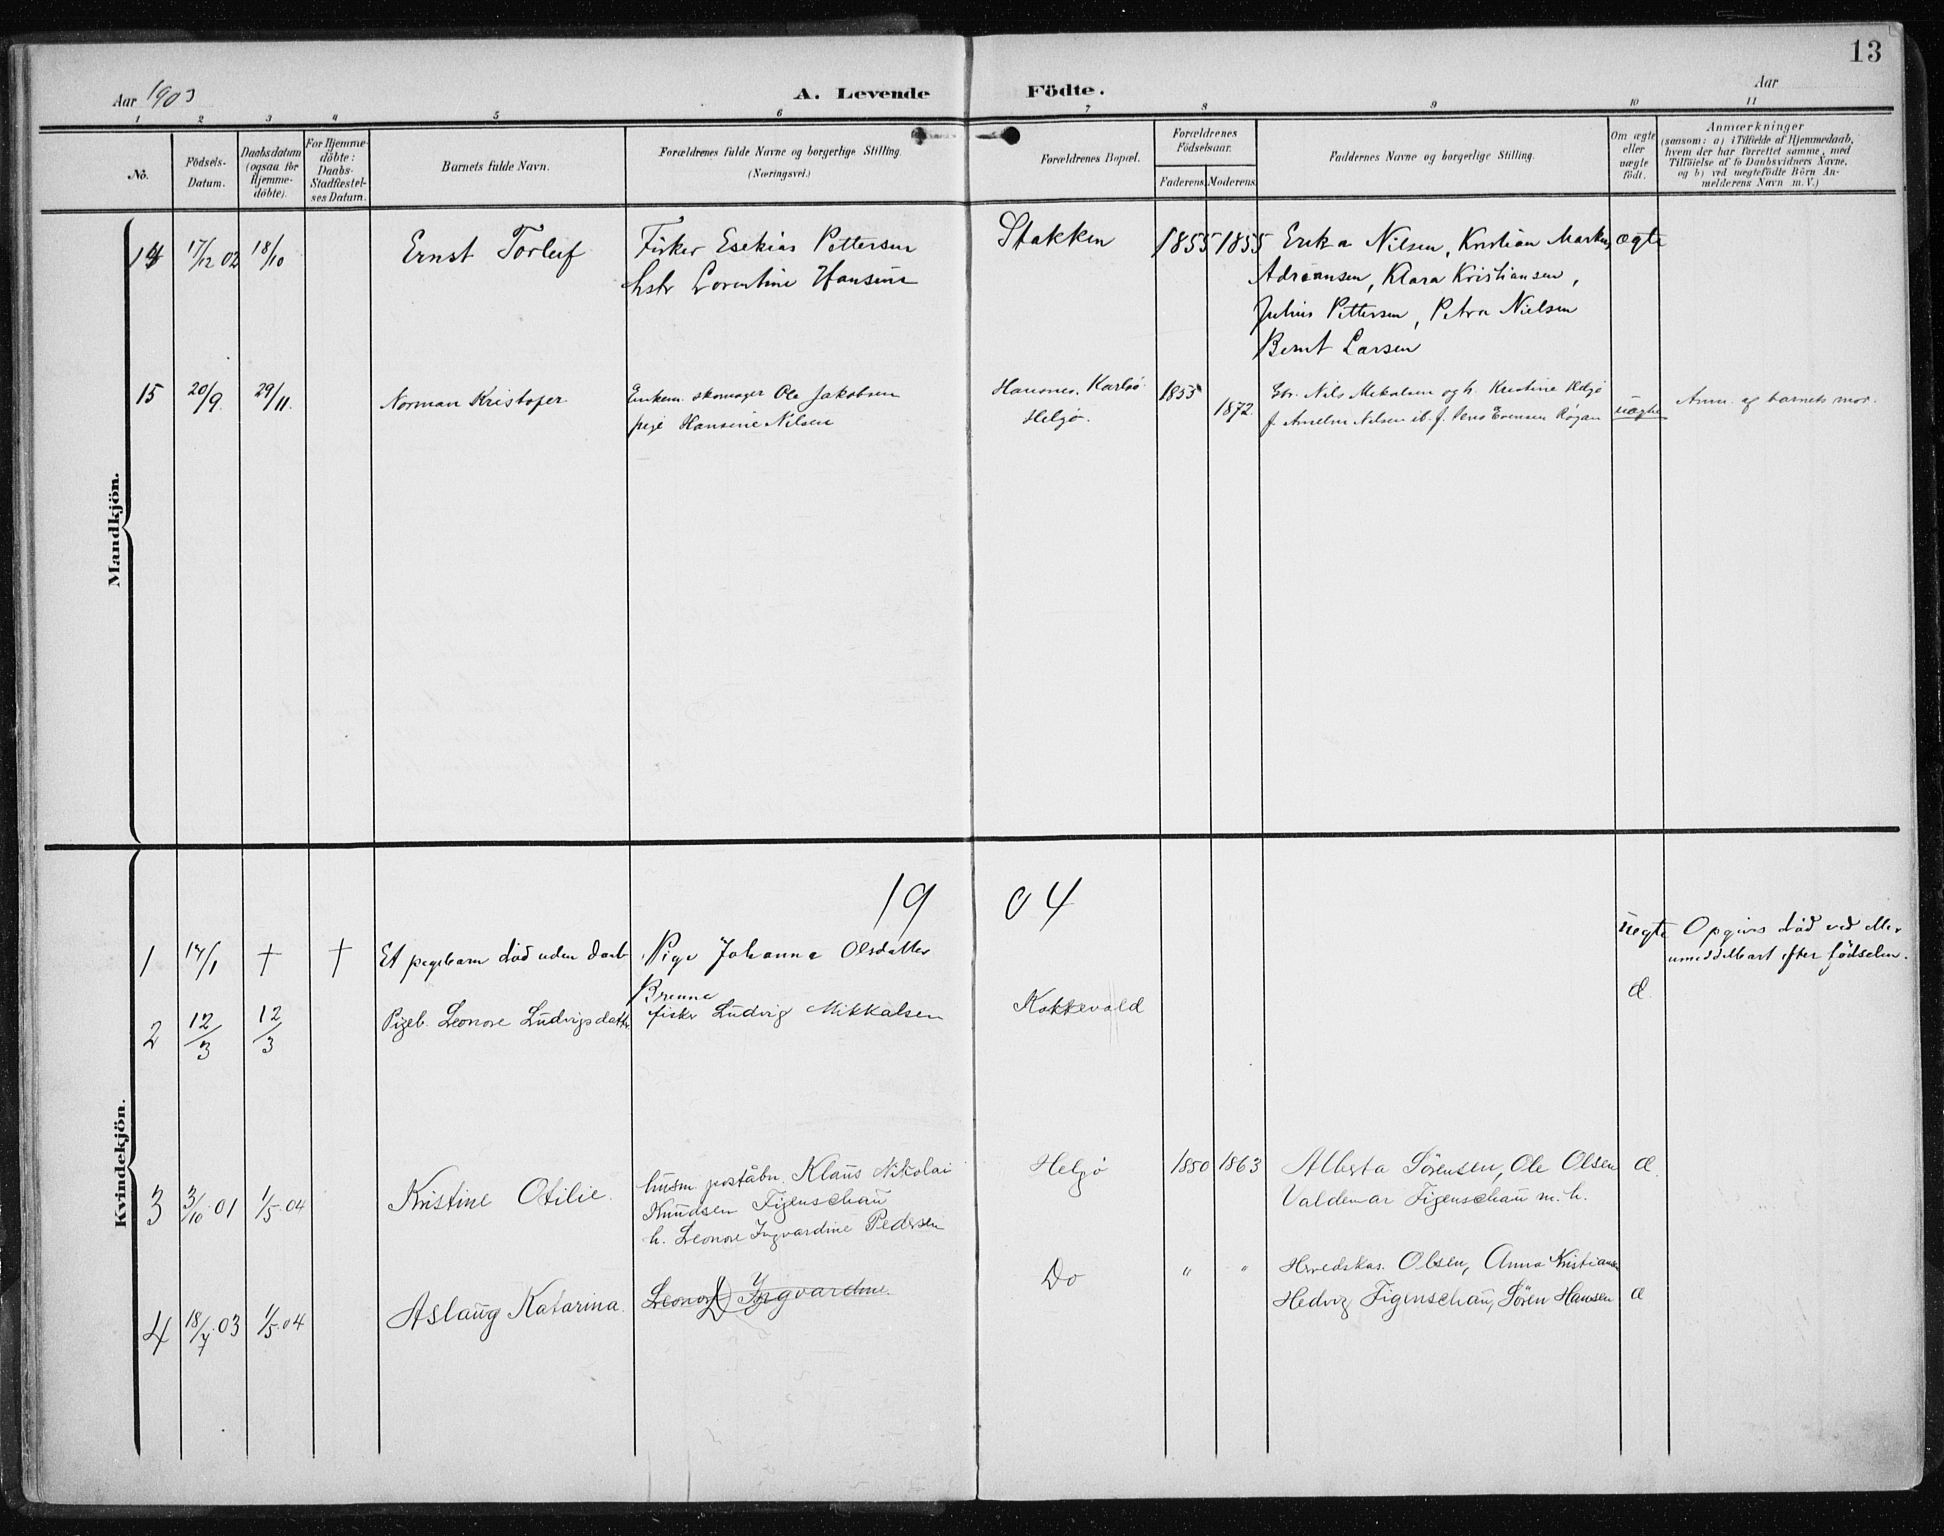 13
Aar 1903
A. Levende Födte.
Aar
1 2 3 4 5 6 7 8 9 10 11
No.
Födsels-
Datum.
Daabsdatum
(ogsaa för
Hjemme-
döbte).
For Hjemme-
döbte:
Daabs-
Stadfæstel-
ses Datum.
Barnets fulde Navn.
Forældrenes fulde Navne og borgerlige Stilling.
(Næringsvei.)
Forældrenes Bopæl.
Forældrenes
Födselsaar.
Faderens. Moderens.
Faddernes Navne og borgerlige Stilling.
Om ægte
eller
uægte
födt.
Anmærkninger
(saasom: a) i Tilfælde af Hjemmedaab,
hvem der har forrettet samme, med
Tilföielse af to Daabsvidners Navne,
og b) ved uægtefödte Börn An-
melderens Navn m. V.)
Mandkjön.
14 17/12 02 18/10 Ernst Torleif Fisker Esekias Pettersen Stakken 1855 1855 Erika Nilsen, Kristian Markus ægte
hstr Lorentine Hansine Adriansen, Klara Kristiansen,
Julius Pettersen, Petra Nielsen
Bernt Larsen
15 20/9 29/11 Norman Kristofer Enkem. skomager Ole Jakobsen Hansnes, Karlsö 1855 Nils Mikalsen og h. Kristine Helgö
pige Hansine Nilsen Helgö. 1872 f. Anselm Nilsen ib. f. Evensen uægte Anm. af barnets mor.
Kvindekjön.
1904
1 14/1 † † Et pigebarn död uden daab Pige Johanna Olsdatter uegte Opgives död ved
Brenne umiddelbart efter födselen.
2 12/3 12/3 Pigeb. Leonore Ludvigsdatter fisker Ludvig Mikkalsen Kokkevold æ.
3 3/10 01 1/5 04 Kristine Otilie. husm. poståbn. Klaus Nikolai Helgö 1850 1863 Alberta Sörensen, Ole Olsen æ.
Knudsen Figenschau Valdemar Figenschau m. h.
h. Leonore Ingvardine Pedersen
4 18/7 03 1/5 04 Aslaug Katarina. Leonore Ingvardine. Do " " Olsen, Anna Kristiansen
Hedvig Figenschau, Sören Hansen æ